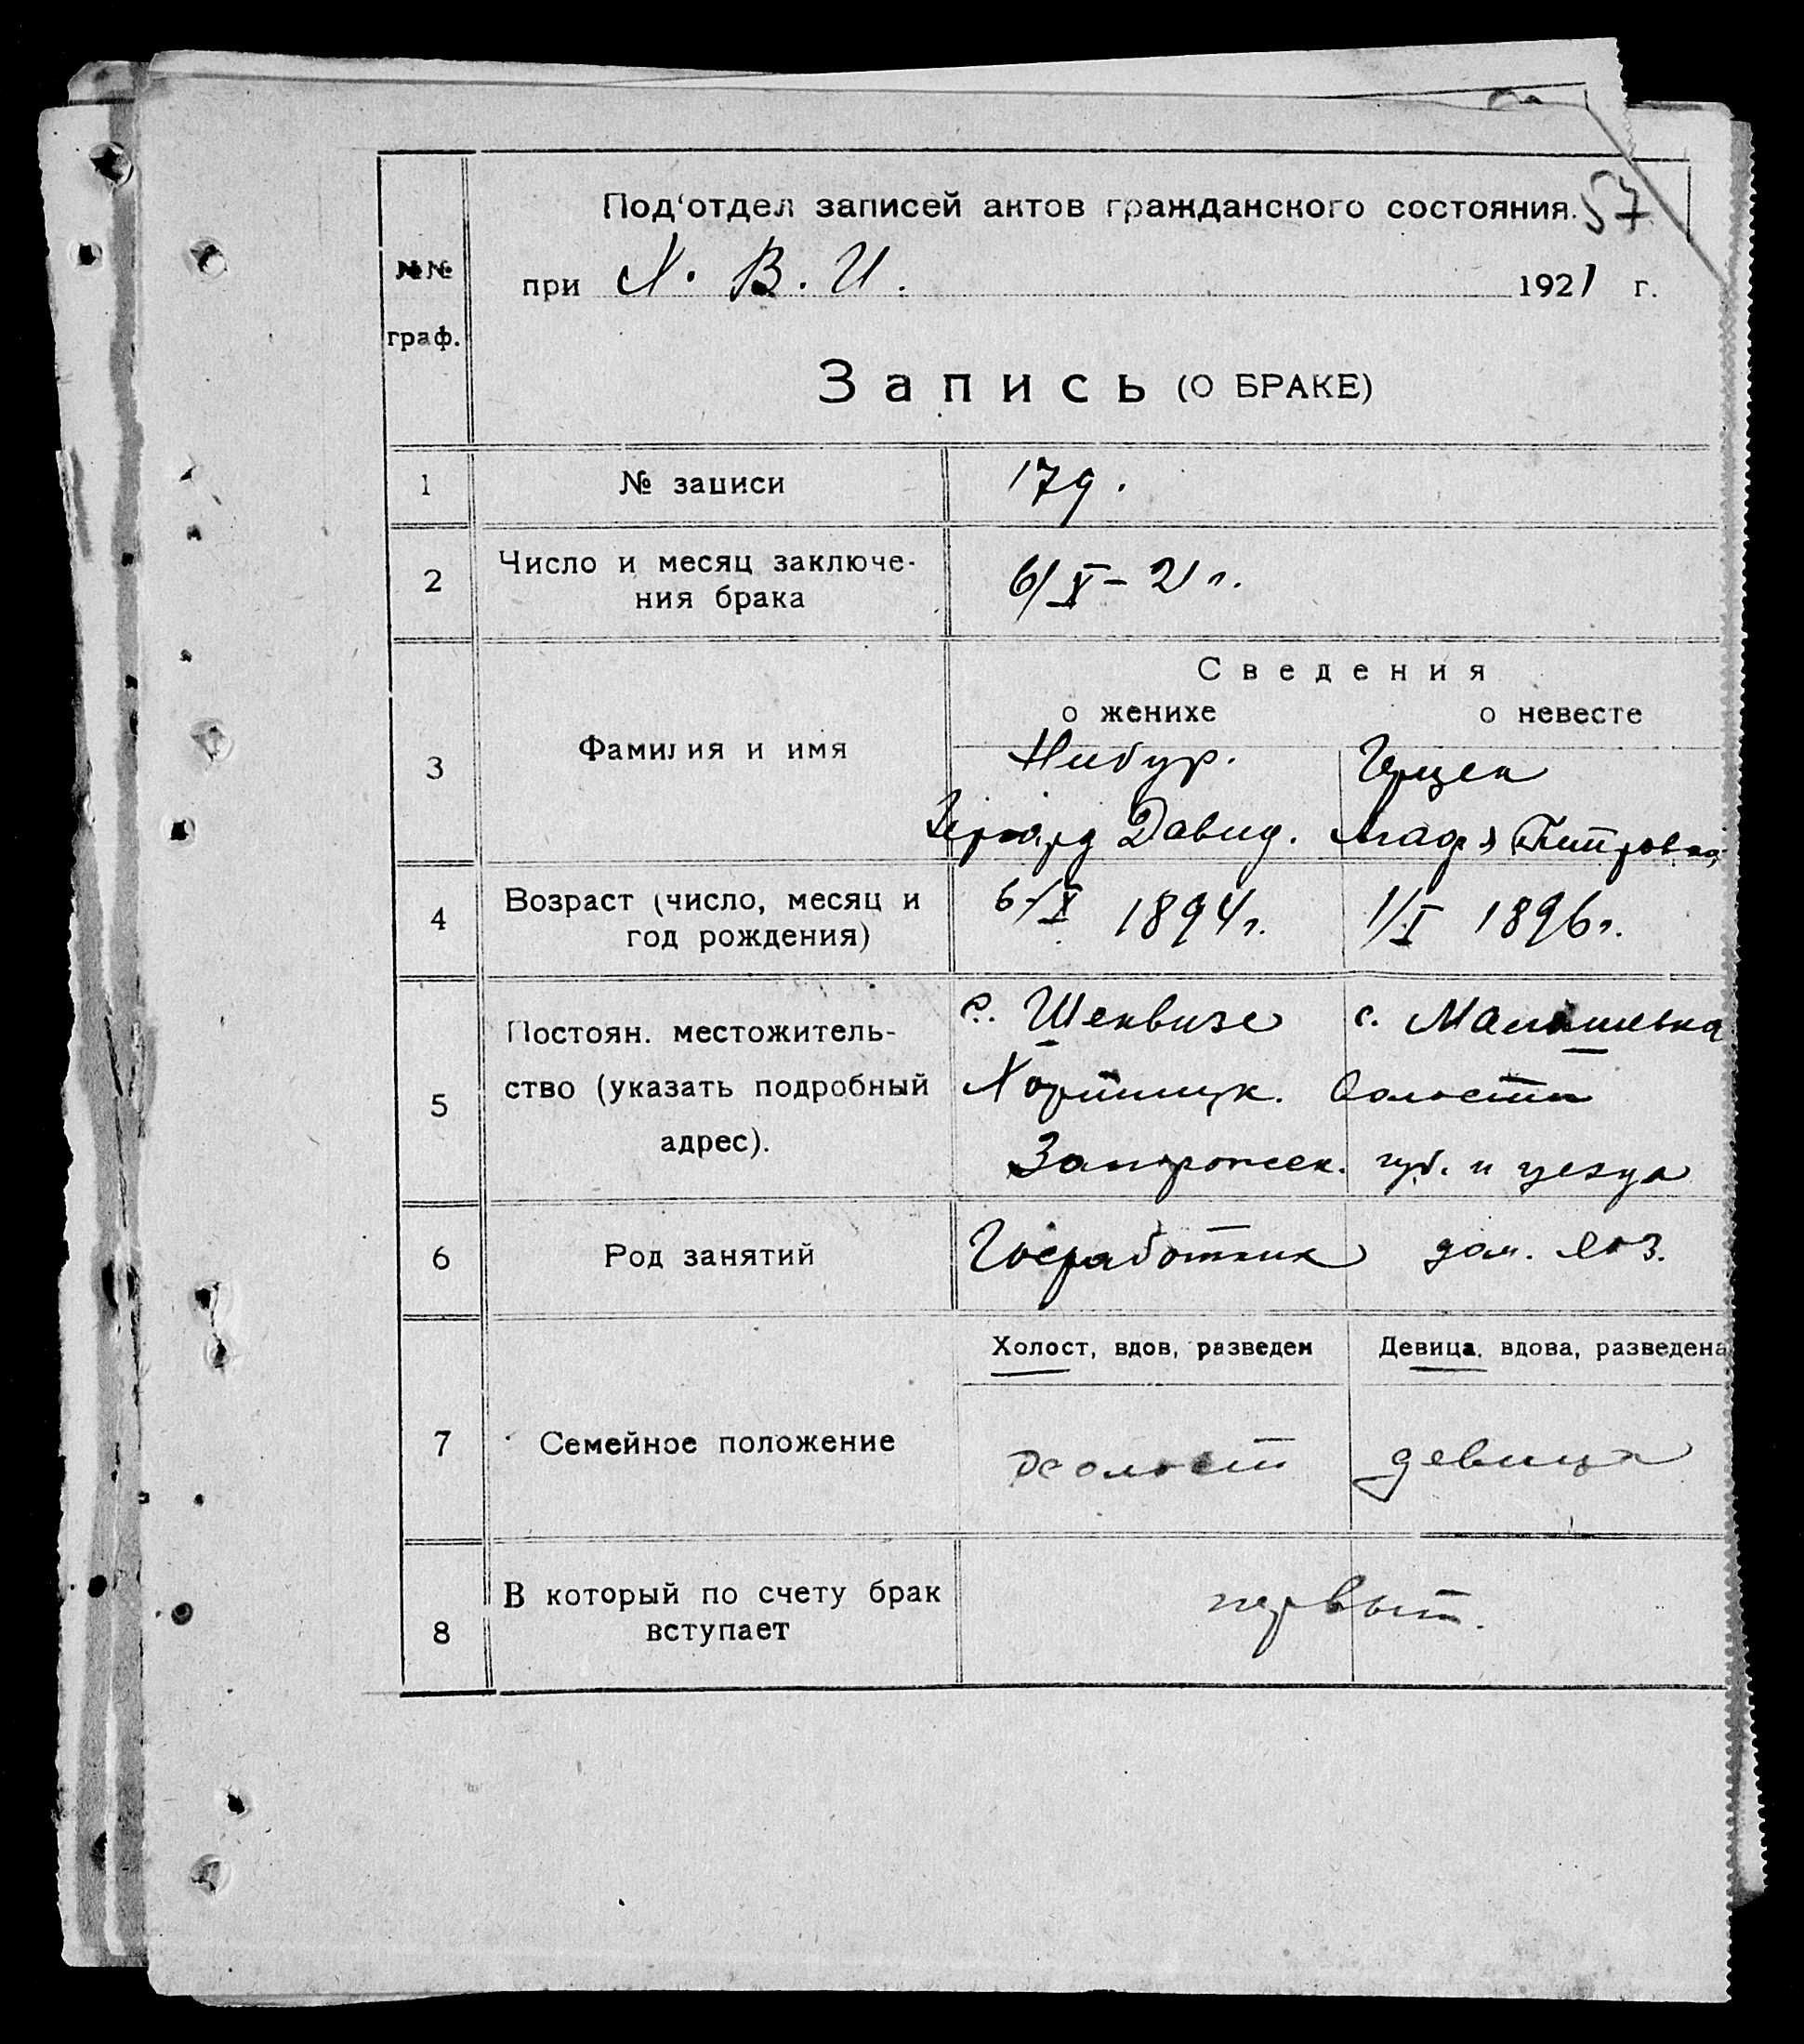 Под'отдел записей актов гражданского состояния. 57
№№ граф.
при Х. В. И. 1921 г.
Запись (О БРАКЕ)
1 № записи 179.
2 Число и месяц заключе-
ния брака 6/X – 21 г.
Сведения
о женихе о невесте
3 Фамилия и имя Нибур.
Давид. Петровна
4 Возраст (число, месяц и
год рождения) 6/X 1894 г. 1/I 1896 г.
с. Шенвизе с.
5 Постоян. местожитель-
ство (указать подробный
адрес).
Хортицк. волости
Запорожск. губ. и уезда
6 Род занятий Госработник дом. хоз.
Холост, вдов, разведен Девица, вдова, разведена
7 Семейное положение холост девица
8 В который по счету брак
вступает первый.